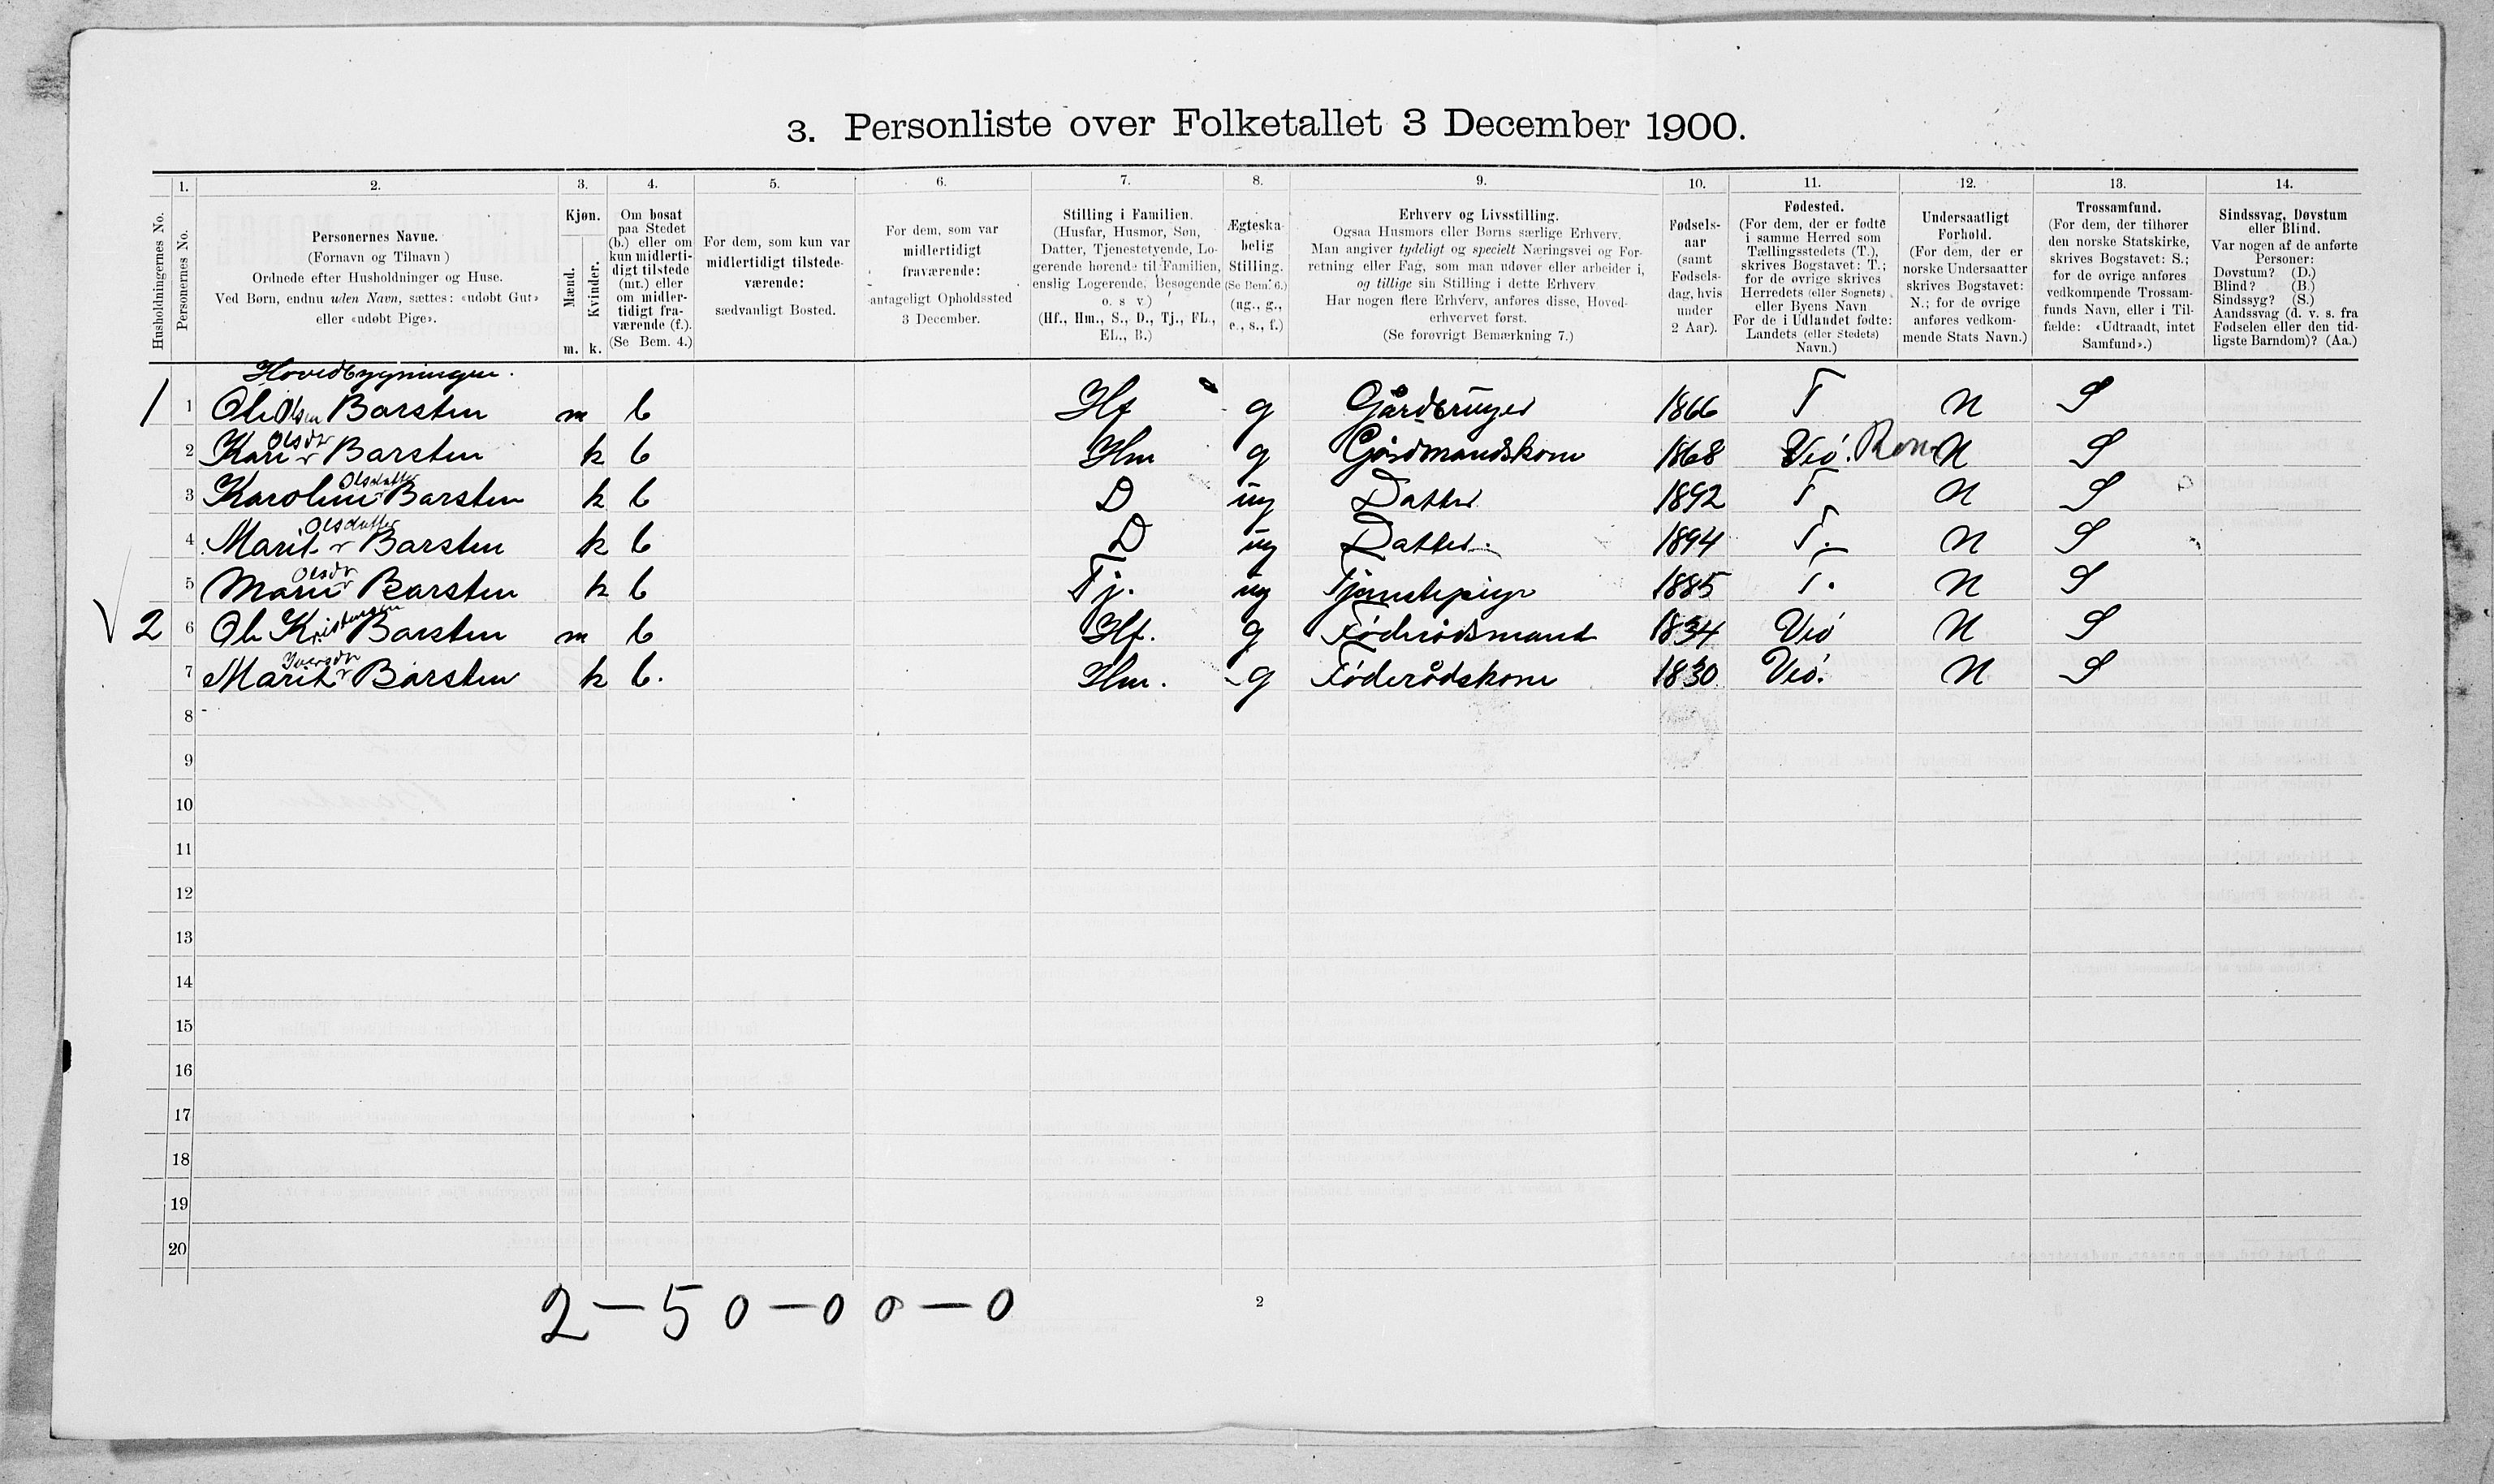 3. Personliste over Folketallet 3 December 1900.
1. 2. 3. 4. 5. 6. 7. 8. 9. 10. 11. 12. 13. 14.
Husholdningernes No.
Personernes No.
Personernes Navne.
(Fornavn og Tilnavn)
Ordnede efter Husholdninger og Huse.
Ved Børn, endnu uden Navn, sættes: «udøbt Gut»
eller «udøbt Pige».
Kjøn.
Mænd.
Kvinder.
m. k.
Om bosat
paa Stedet
(b.) eller om
kun midlerti-
digt tilstede
(mt.) eller
om midler-
tidigt fra-
værende (f.).
(Se Bem. 4.)
For dem, som kun var
midlertidigt tilstede-
værende:
sædvanligt Bosted.
For dem, som var
midlertidigt
fraværende:
antageligt Opholdssted
3 December.
Stilling i Familien.
(Husfar, Husmor, Søn,
Datter, Tjenestetyende, Lo-
gerende hørende til Familien,
enslig Logerende, Besøgende
o. s v.)
(Hf., Hm., S., D., Tj., FL.,
EL., B.)
Ægteska-
belig
Stilling.
(Se Bem. 6.)
(ug., g.,
e., s., f.)
Erhverv og Livsstilling.
Ogsaa Husmors eller Børns særlige Erhverv.
Man angiver tydeligt og specielt Næringsvei og For-
retning eller Fag, som man udøver eller arbeider i,
og tillige sin Stilling i dette Erhverv
Har nogen flere Erhverv, anføres disse, Hoved-
erhvervet først.
(Se forøvrigt Bemærkning 7.)
Fødsels-
aar
(samt
Fødsels-
dag, hvis
under
2 Aar).
Fødested.
(For dem, der er fødte
i samme Herred som
Tællingsstedets (T.),
skrives Bogstavet: T.;
for de øvrige skrives
Herredets (eller Sognets)
eller Byens Navn
For de i Udlandet fødte:
Landets (eller Stedets)
Navn.)
Undersaatligt
Forhold.
(For dem, der er
norske Undersaatter
skrives Bogstavet:
N.; for de øvrige
anføres vedkom-
mende Stats Navn.)
Trossamfund.
(For dem, der tilhører
den norske Statskirke,
skrives Bogstavet: S.;
for de øvrige anføres
vedkommende Trossam-
funds Navn, eller i Til-
fælde: «Udtraadt, intet
Samfund».)
Sindssvag, Døvstum
eller Blind.
Var nogen af de anførte
Personer:
Døvstum? (D.)
Blind? (B.)
Sindssyg? (S.)
Aandssvag (d. v. s. fra
Fødselen eller den tid-
ligste Barndom)? (Aa.)
Hovedbygningen.
1 1 Ole Olsen Barsten m b Hf g Gårdbruger 1866 T N S
2 Kari Olsdtr Barsten k b Hm g Gårdmandskone 1868 Veø. N S
3 Karoline Olsdatter Barsten k b D ug Datter 1892 T N S
4 Marit Olsdatter Barsten k b D ug Datter. 1894 T. N S
5 Marie Olsdr Barsten k b Tj. ug Tjenestepige 1885 T. N S
2 6 Ole Kristensen Barsten m b Hf. g Føderådsmand 1834 Veø N S
7 Marit Iversdtr Barsten k b. Hm. g Føderådskone 1830 Veø. N S
8
9
10
11
12
13
14
15
16
17
18
19
20
2 — 5 0 — 0 0 — 0
2